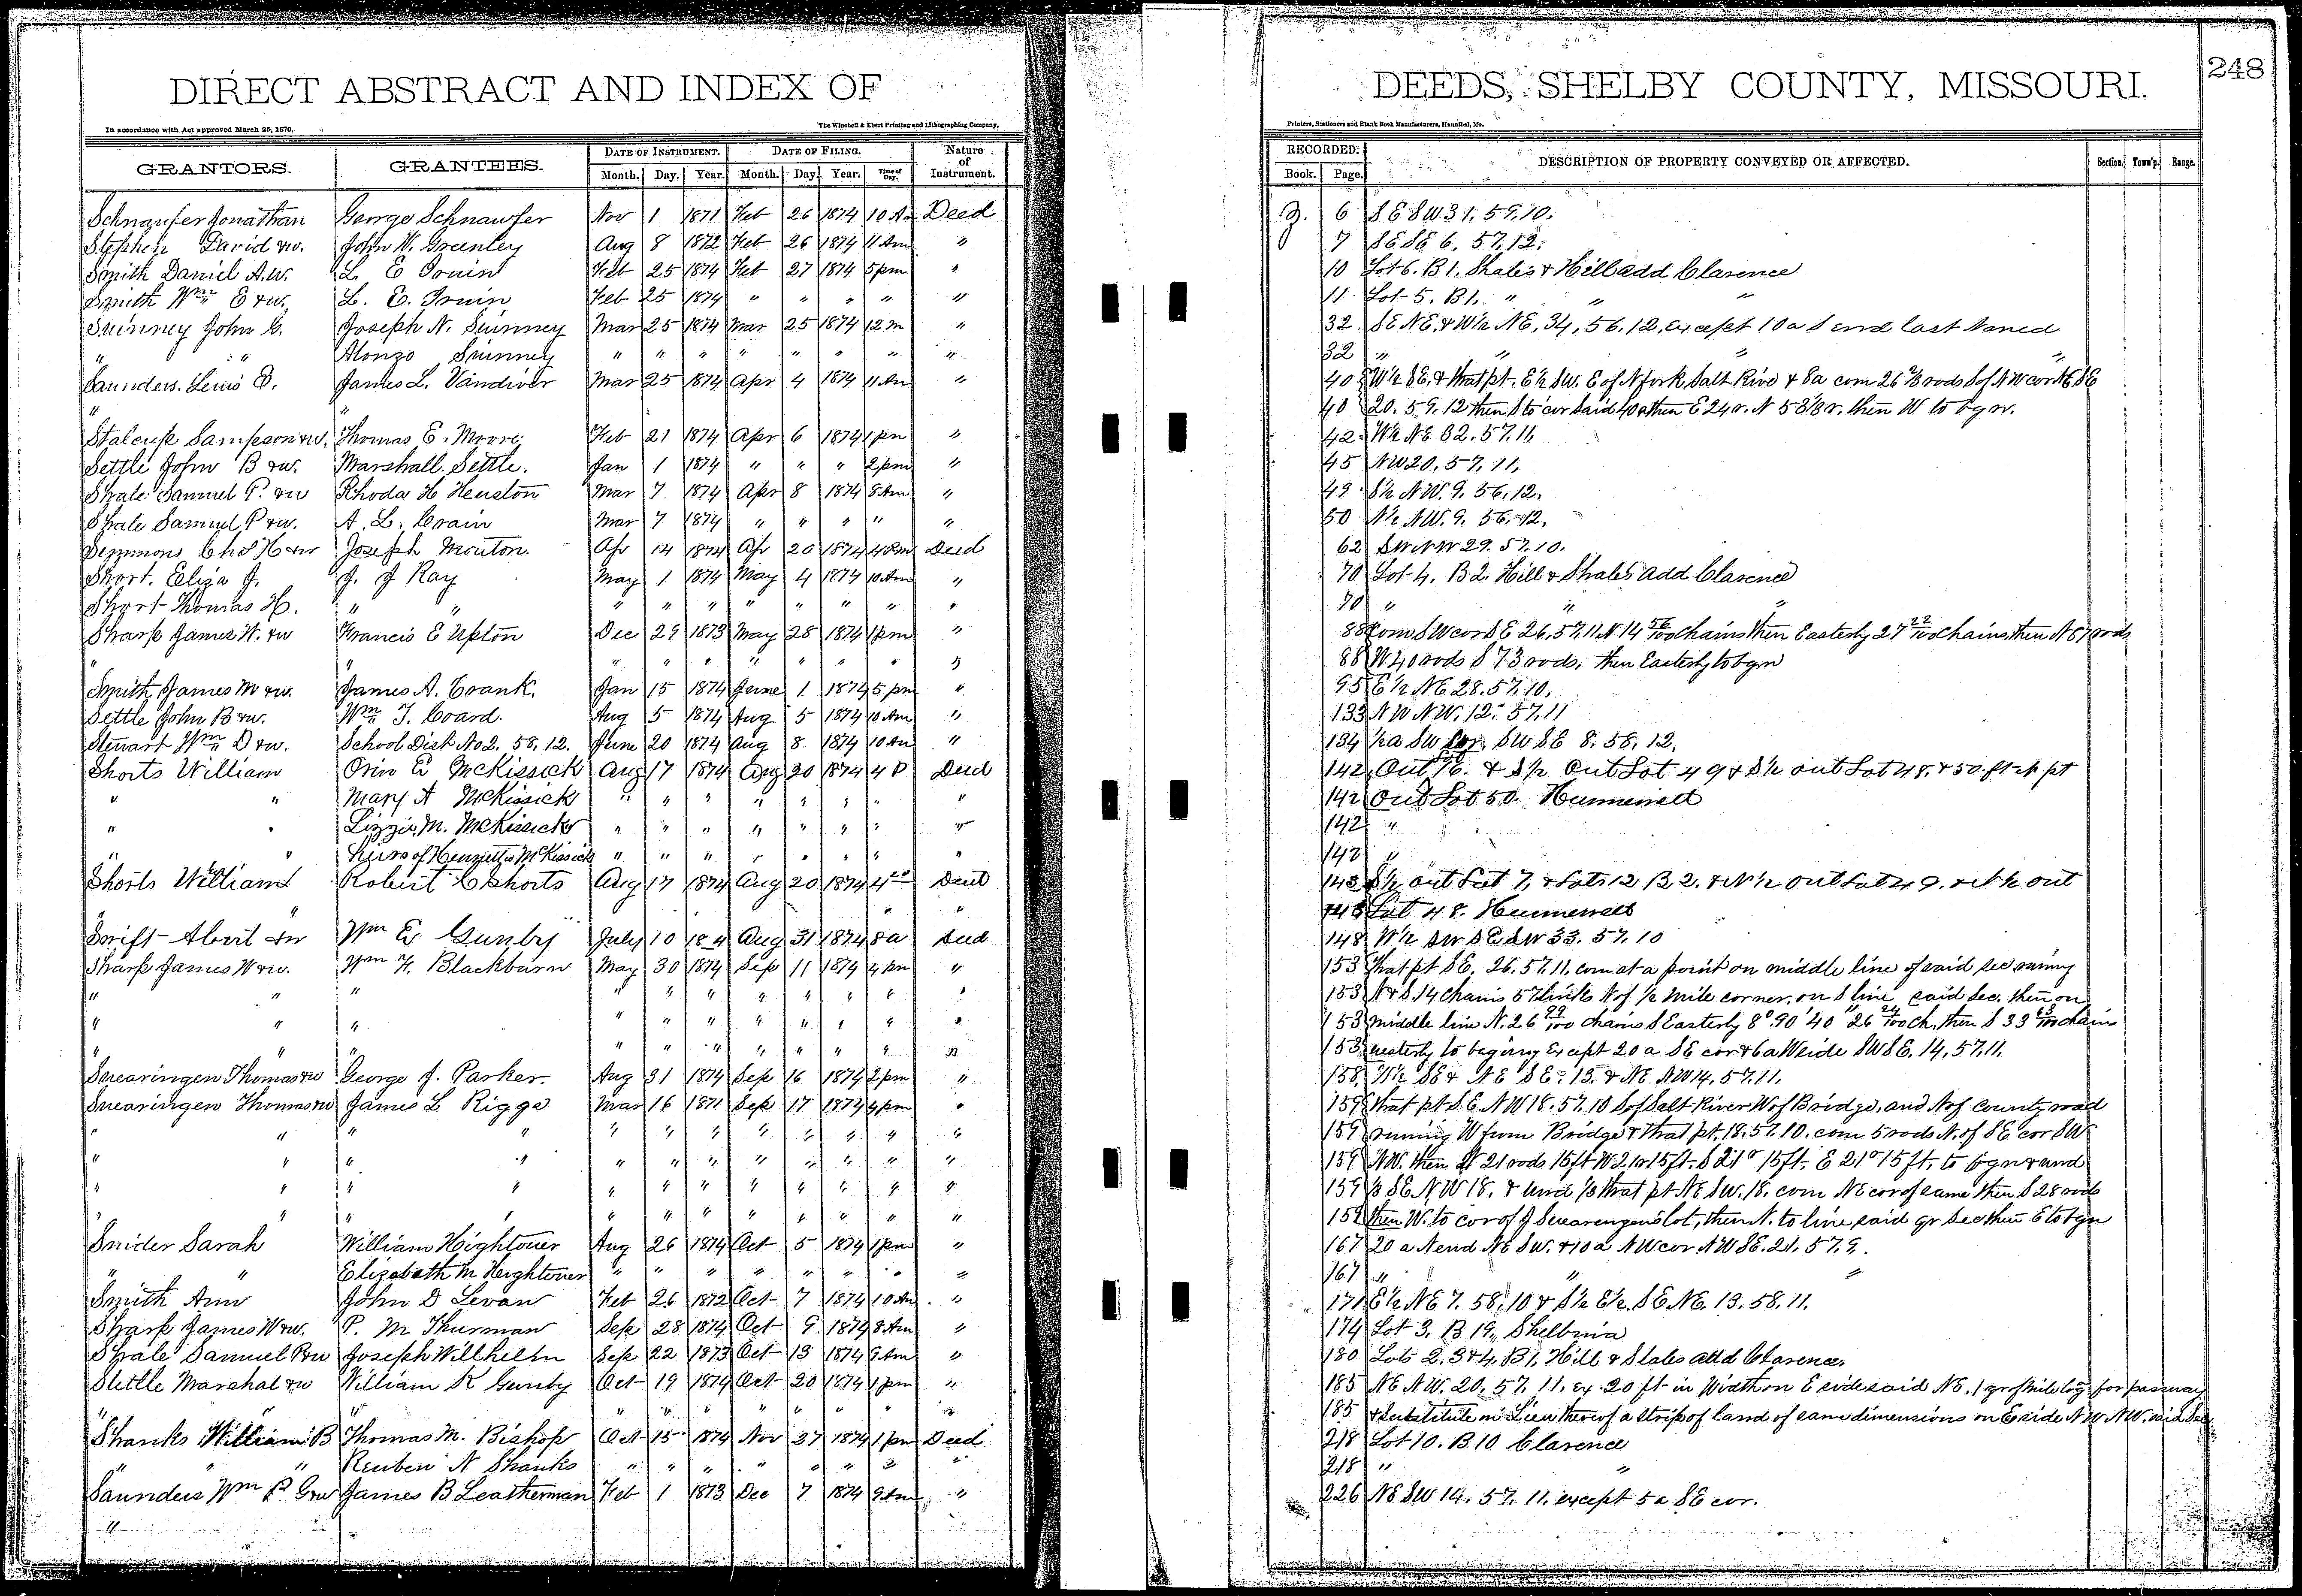 DIRECT ABSTRACT AND INDEX OF
In accordance with Act approved March 25, 1870.
The Winchell & Ebert Printing and Lithographing Company,
GRANTORS. GRANTEES. DATE OF INSTRUMENT. DATE OF FILING. Nature of Instrument.
Month. Day. Year. Month. Day. Year. Time of Day.
Schnaufer Jonathan George Schnaufer Nov 1 1871 Feb 26 1874 10 Am Deed
Stephen David & w. John W. Greenley Aug 8 1872 Feb 26 1874 11 Am "
Smith Daniel A. W. L. E Irwin Feb 25 1874 Feb 27 1874 5 pm "
Smith Wm E & w. L. E. Irwin Feb 25 1874 " " " " "
Swinney John G. Joseph N. Swinney Mar 25 1874 Mar 25 1874 12 m "
" " Alonzo Swinney " " " " " " " "
Saunders Lewis James L. Vandiver Mar 25 1874 Apr 4 1874 11 Am "
" "
Stalcup Sampson & w. Thomas E. Moore Feb 21 1874 Apr 6 1874 1 pm "
Settle John B & w. Marshall Settle. Jan 1 1874 " " " 2 pm "
Shale Samuel P. & w Rhoda H Heuston Mar 7 1874 Apr 8 1874 8 Am "
Shale Samuel P & w. A. L. Crain Mar 7 1874 " " " " "
Simmons Chs H & w Joseph Mouton. Apr 14 1874 Apr 20 1874 4 Pm Deed
Short. Eliza J. J. J Ray May 1 1874 May 4 1874 10 Am "
Short Thomas H. " " " " " " " " " "
Sharp James W. & w Francis E Upton Dec 29 1873 May 28 1874 1 pm "
" " " " " " " " " "
Smith James M & w. James A. Crank. Jan 15 1874 June 1 1874 5 pm "
Settle John B & w. Wm T. Coard. Aug 5 1874 Aug 5 1874 10 Am "
Stewart Wm D & w. School Dist No 2. 58. 12. June 20 1874 Aug 8 1874 10 Am "
Shorts William Orin E McKissick Aug 17 1874 Aug 20 1874 4 P Deed
" " Mary A McKissick " " " " " " " "
" " Lizzie M. McKissick " " " " " " " "
" " Heirs of Henrietta McKissick " " " " " " " "
Shorts William Robert C Shorts Aug 17 1874 Aug 20 1874 4 Deed
" " "
Swift Albert & w Wm E Gunby July 10 Aug 31 1874 8 a Deed
Sharp James W & w. Wm F. Blackburn May 30 1874 Sep 11 1874 4 pm "
" " " " " " " " " " "
" " " " " " " " " " "
" " " " " " " " " " "
Swearingen Thomas & w George J. Parker. Aug 31 1874 Sep 16 1874 2 pm "
Swearingen Thomas & w James L Riggs Mar 16 1871 Sep 17 1874 4 pm "
" " " " " " " " " " " "
" " " " " " " " " " " "
" " " " " " " " " " " "
" " " " " " " " " " " "
Snider Sarah William Hightower Aug 26 1874 Oct 5 1874 1 pm "
" " Elizabeth M Hightower " " " " " " " "
Smith Ann John D Levan Feb 26 1872 Oct 7 1874 10 Am "
Sharp James W & w. P. M Thurman Sep 28 1874 Oct 9 1874 8 Am "
Shale Samuel P & w Joseph Willhelm Sep 22 1873 Oct 13 1874 9 Am "
Settle Marshal & w William R Gunby Oct 19 1874 Oct 20 1874 1 pm "
" " " " " " " " "
Shanks William B Thomas M. Bishop Oct 15 1874 Nov 27 1874 1 pm Deed
" " Reuben N Shanks " " " " " " " "
Saunders Wm P James B Leatherman Feb 1 1873 Dec 7 1874 9 Am "
"
DEEDS, SHELBY COUNTY, MISSOURI.
248
Printers, Stationers and Blank Book Manufacturers, Hannibal, Mo.
RECORDED. DESCRIPTION OF PROPERTY CONVEYED OR AFFECTED. Section. Town'p. Range.
Book. Page.
6 S E SW 31. 59. 10.
7 SE SE 6. 57. 12.
10 Lot 6. B 1. Shales & Hills add Clarence
11 Lot 5. B 1. " " "
32 SE NE. & W½ NE, 34, 56. 12, except 10 a S end last named
32 " " " "
40 W½ SE. & that pt. E½ SW. E of N fork Salt River & 8a com 26 ⅔ rods S of NW cor NE SE
40 20. 59. 12 then S to cor said 40 a then E 24 r. N 53⅓ r. then W to bgn.
42 W½ NE 32. 57. 11.
45 NW 20. 57. 11.
49 S½ NW. 9. 56. 12.
50 N½ NW. 9. 56. 12.
62 SW NW 29. 57. 10.
70 Lot 4. B 2. Hill & Shales Add Clarence
70 " " "
88 Com SW cor SE 26, 57. 11 N 14 56/100 chains then Easterly 27 22/100 chains, then N 87 rods
88 W 40 rods S 73 rods, then Easterly to bgn
95 E½ NE 28. 57. 10.
133 NW NW. 12. 57. 11
134 ½ a SW cor. SW SE 8. 58. 12.
142 Out 16. & S½ Out Lot 49 & S½ out Lot 48. & 50 ft N pt
142 Out Lot 50. Hunnewell
142 "
142 "
143 S½ out Lot 7, & Lots 12 B 2. & N½ out Lot 49. & N½ out
143 Lot 48. Hunnewell
148 W½ SW SE SW 33. 57. 10
153 That pt SE. 26. 57. 11. com at a point on middle line of said sec runing
153 N & S 14 chains 57 links N of ½ mile corner, on S line said Sec. then on
153 middle line N. 26 99/100 chains S Easterly 8° 90' 40" 26 24/100 ch, then S 33 chains
153 westerly to begining Except 20 a SE cor & 6 a W side SW SE. 14, 57. 11.
158 W½ SE & NE SE. 13. & NE NW 14. 57. 11.
159 that pt S. E. NW 18. 57. 10 S of Salt River W of Bridge, and N of County road
159 running W from Bridge & that pt. 18. 57. 10. com 5 rods N. of SE cor SW
159 NW. then N 21 rods 15 ft W 21 r 15 ft. S 21 r 15 ft. E 21 r 15 ft. to bgn & und
159 ⅓ SE NW 18. & und ⅓ that pt NE SW. 18. com NE cor of same then S 28 rods
159 then W. to cor of J Swearengens lot, then N. to line said qr Sec then E to bgn
167 20 a N end NE SW. & 10 a NW cor NW SE. 21. 57. 9.
167 " " "
171 E½ NE 7. 58. 10 & S½ E½. SE NE. 13. 58. 11.
174 Lot 3. B 19, Shelbina
180 Lots 2. 3 & 4. B 1, Hill & Shales add Clarence.
185 NE NW. 20. 57. 11. ex 20 ft in width on E side said NE. for passway
185 & Substitute in Lieu thereof a strip of land of same dimensions on E side NW NW. said Sec
218 Lot 10. B 10 Clarence
218 " "
226 NE SW 14. 57. 11. except 5 a SE cor.